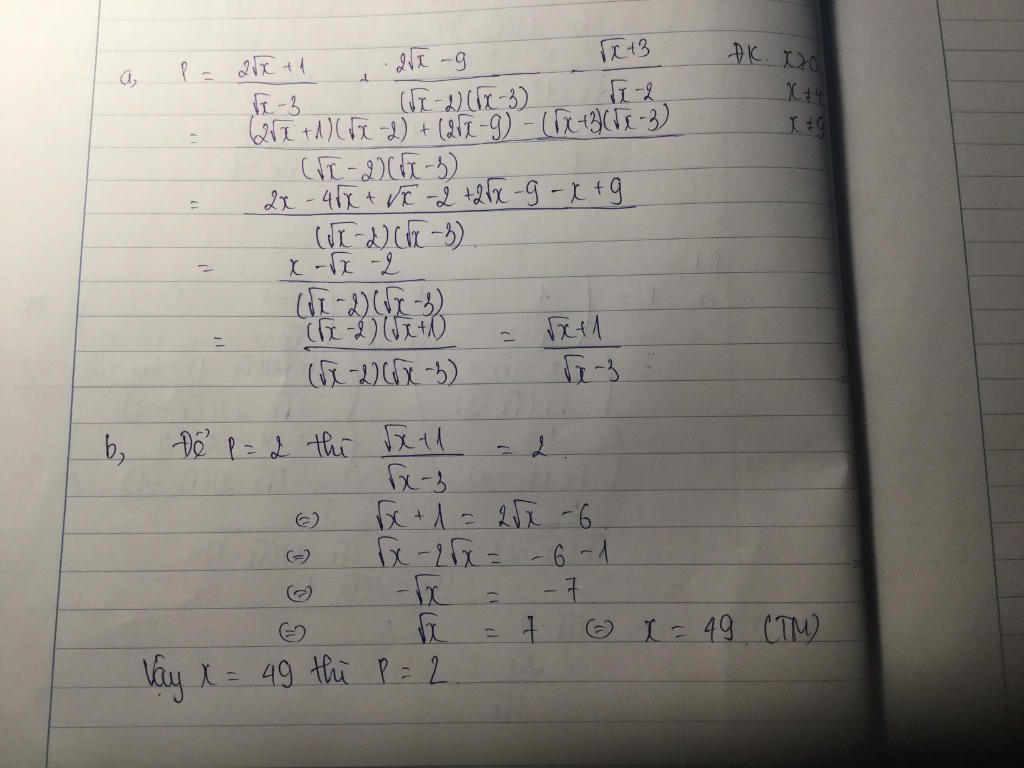 a, P = (2√x + 1)/(√x - 3) + (2√x - 9)/((√x - 2)(√x - 3)) - (√x + 3)/(√x - 2) ĐK. x ≥ 0
x ≠ 4
= ((2√x + 1)(√x - 2) + (2√x - 9) - (√x + 3)(√x - 3))/((√x - 2)(√x - 3)) x ≠ 9
= (2x - 4√x + √x - 2 + 2√x - 9 - x + 9)/((√x - 2)(√x - 3))
= (x - √x - 2)/((√x - 2)(√x - 3))
= ((√x - 2)(√x + 1))/((√x - 2)(√x - 3)) = (√x + 1)/(√x - 3)
b, Để P = 2 thì (√x + 1)/(√x - 3) = 2
(=) √x + 1 = 2√x - 6
(=) √x - 2√x = -6 - 1
(=) -√x = -7
(=) √x = 7 (=) x = 49 (TM)
Vậy x = 49 thì P = 2